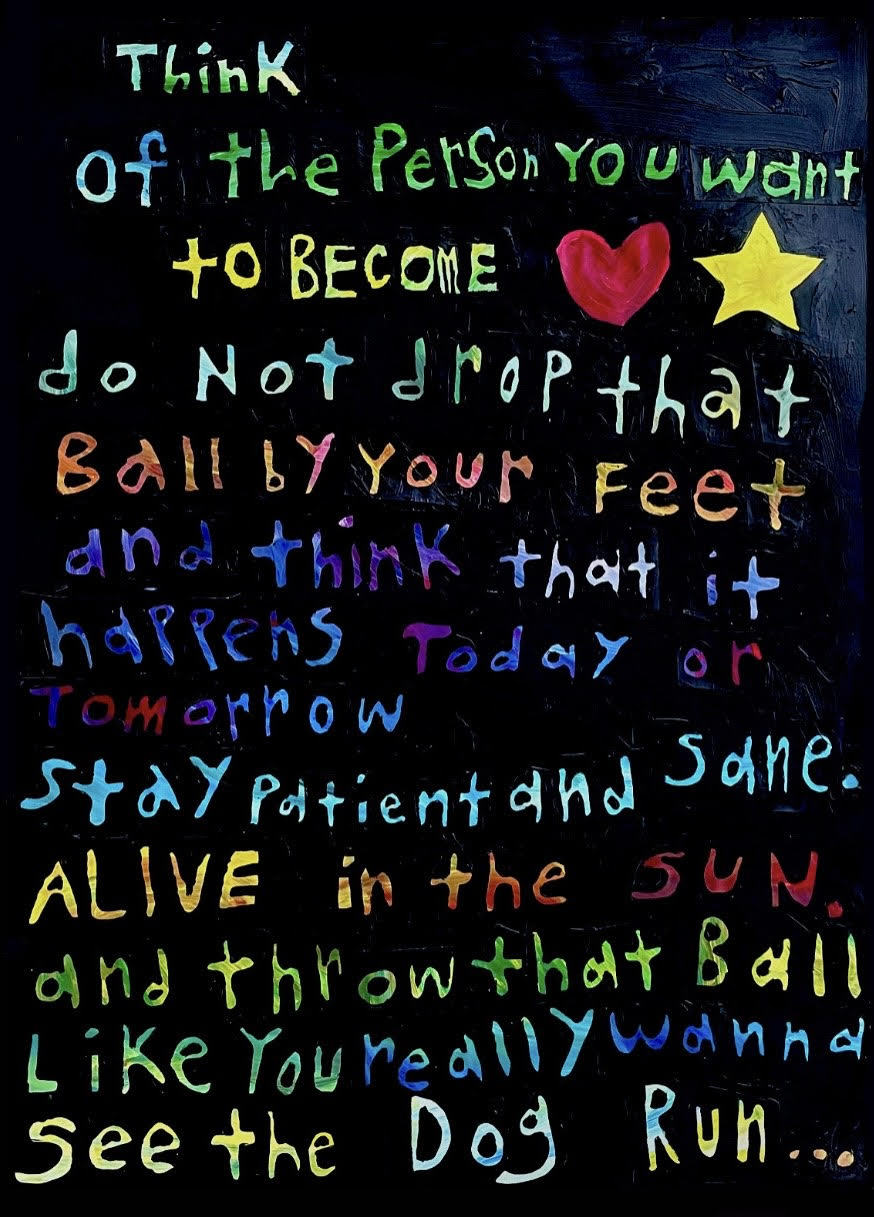 Think
of the Person You want
to BECOME
do Not drop that
Ball by your Feet
and think that it
happens Today or
Tomorrow
stay patient and sane.
ALIVE in the SUN.
and throw that Ball
Like You really wanna
see the Dog Run...